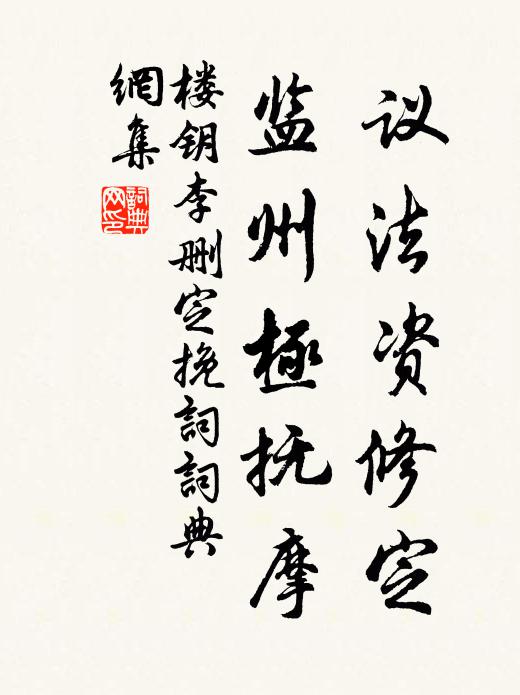 议法资修定
监州極抚摩
楼钥李删定挽詞詞典
網集
詞典
网印